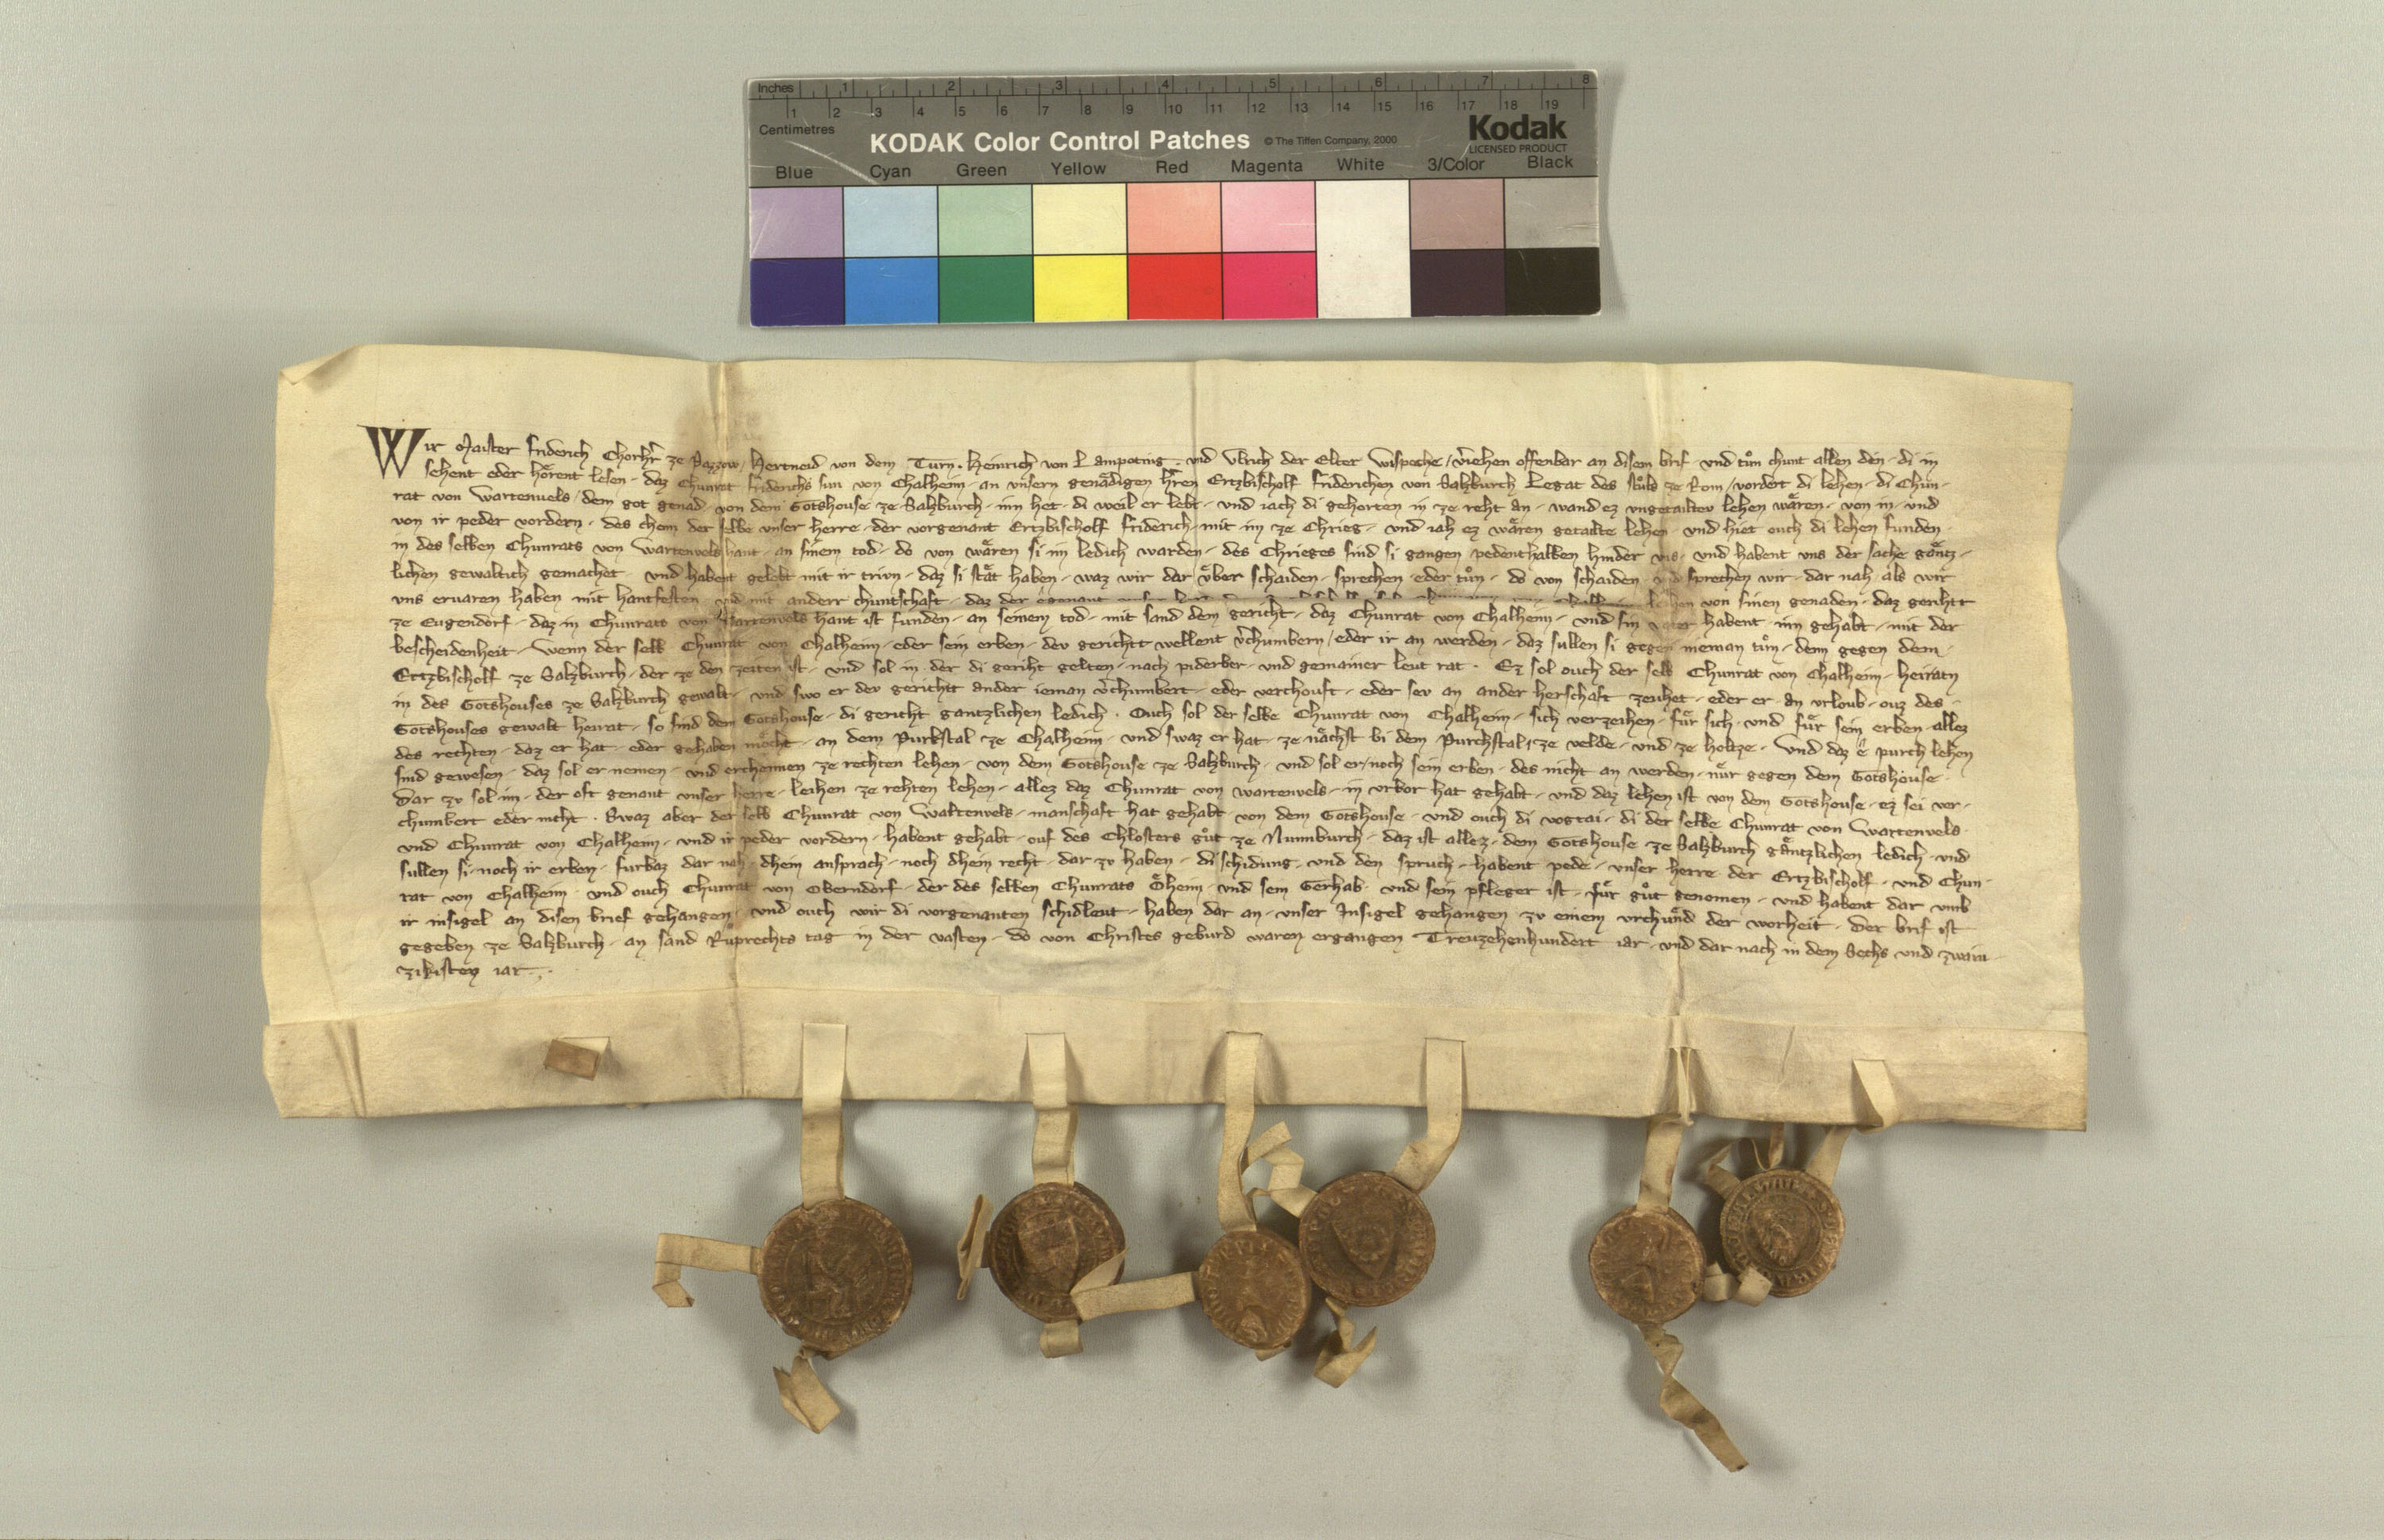 Inches 1 2 3 4 5 6 7 8
1 2 3 4 5 6 7 8 9 10 11 12 13 14 15 16 17 18 19
Centimetres
KODAK Color Control Patches © The Tiffen Company, 2000 Kodak
LICENSED PRODUCT
Blue Cyan Green Yellow Red Magenta White 3/Color Black
Wir Maister Friderich Chorh'r ze Pazzow / Hertneid von dem Turn . Heinrich von Lampoting . vnd Vlrich der Elter Wispeche / v'iehen offenbar an disem brif . vnd tuͦn chunt allen den . di in
sehent oder hoͤrent lesen . daz Chunrat Friderichs sun von Chalheim . an vnsern genaͤdigen h'ren Ertzbischolf Friderichen von Saltzburch Legat des stuͦls ze Rom / vordert di lehen . di Chun-
rat von Wartenuels / dem got genad . von dem Gotshouse ze Saltzburch . inn het . di weil er lebt . vnd iach di gehorten in ze reht an . wand ez vngetailtev lehen waͤren . von in . vnd
von ir peder vordern . des chom der selbe vnser herre . der vorgenant Ertzbischolf Friderich . mit im ze Chrieg . vnd iah ez waͤren getailte lehen . vnd hiet ouch di lehen funden .
in des selben Chunrats von Wartenvels hant . an sinem tod . do von waͤren si im ledich warden . des Chrieges sind si gangen . pedenthalben hinder vns . vnd habent vns der sache gaͤntz-
lichen gewaltich gemachet . vnd habent gelobt mit ir triwn . daz si staͤt haben . waz wir dar vͤber schaiden . sprechen . eder tuͦn . do von schaiden . vnd sprechen wir . dar nah als wir
vns ervaren haben mit hantfesten . vnd mit anderr chuntschaft . daz der egenant lehen von sinen genaden . daz geriht
ze Eugendorf . daz in Chunrats von Wartenvels hant ist funden . an seinem tod . mit sand dem gericht . daz Chunrat von Chalheim . vnd sin vater habent inn gehabt . mit der
bescheidenheit . Wenn der selb Chunrat von Chalheim . eder sein erben . dev gericht wellent v'chumbern / eder ir an werden . daz sullen si gegen nieman tuͦn . denn gegen dem .
Ertzbischolf ze Saltzburch . der ze den zeiten ist . vnd sol in der di geriht gelten . nach piderber . vnd gemainer leut rat . Ez sol ouch der selb Chunrat von Chalheim . heiratn
in des Gotshouses ze Saltzburch gewalt . vnd swo er dev gericht ander ieman v'chumbert . eder verchouft . eder sev an ander herschaft zeuhet . eder er . an vrloub . ouz des .
Gotshouses gewalt heirat . so sind dem Gotshouse . di gericht gantzlichen ledich . Ouch sol der selbe Chunrat von Chalheim . sich verzeihen . fuͤr sich . vnd fuͤr sein erben . allez
des rechten . daz er hat . eder gehaben moͤcht . an dem Purkstal ze Chalheim . vnd swaz er hat . ze naͤchst bi dem Purchstal / ze velde . vnd ze holtze . Vnd daz e purch lehen
sind gewesen . daz sol er nemen . vnd erchennen ze rechten lehen . von dem Gotshouse ze Saltzburch . vnd sol er / noch sein erben . des nicht an werden . nuͤr gegen dem Gotshouse .
Dar zv sol im . der oft genant vnser herre . leihen ze rehten lehen . allez daz Chunrat von Wartenvels . in vrbor hat gehabt . vnd daz lehen ist von dem Gotshouse . ez sei ver-
chumbert eder niht . Swaz aber der selb Chunrat von Waltenvels . manschaft hat gehabt von dem Gotshouse . vnd ouch di vogtai . di der selbe Chunrat von Wartenvels .
vnd Chunrat von Chalheim . vnd ir peder vordern . habent gehabt . ouf des Chlosters guͦt ze Nunnburch . daz ist allez . dem Gotshouse ze Saltzburch gaͤntzlichen ledich . vnd
sullen si . noch ir erben . furbaz dar nah . dhein ansprach . noch dhein recht . dar zv haben . di schidung . vnd den spruch . habent pede . vnser herre der Ertzbischolf . vnd Chun-
rat von Chalheim . vnd ouch Chunrat von Oberndorf . der des selben Chunrats oͤheim . vnd sein Gerhab . vnd sein pfleger ist . fuͤr guͦt genomen . vnd habent dar vmb
ir insigel an disen brief gehangen . vnd ouch wir di vorgenanten schidleut . haben dar an . vnser Insigel gehangen zv einem vrchuͤnd der worheit . Der brif ist
gegeben ze Saltzburch . an sand Ruͦprechts tag in der vasten . do von Christes geburd waren ergangen Treuzehenhundert iar . vnd dar nach in dem Sechs vnd zwain-
zikisten iar .